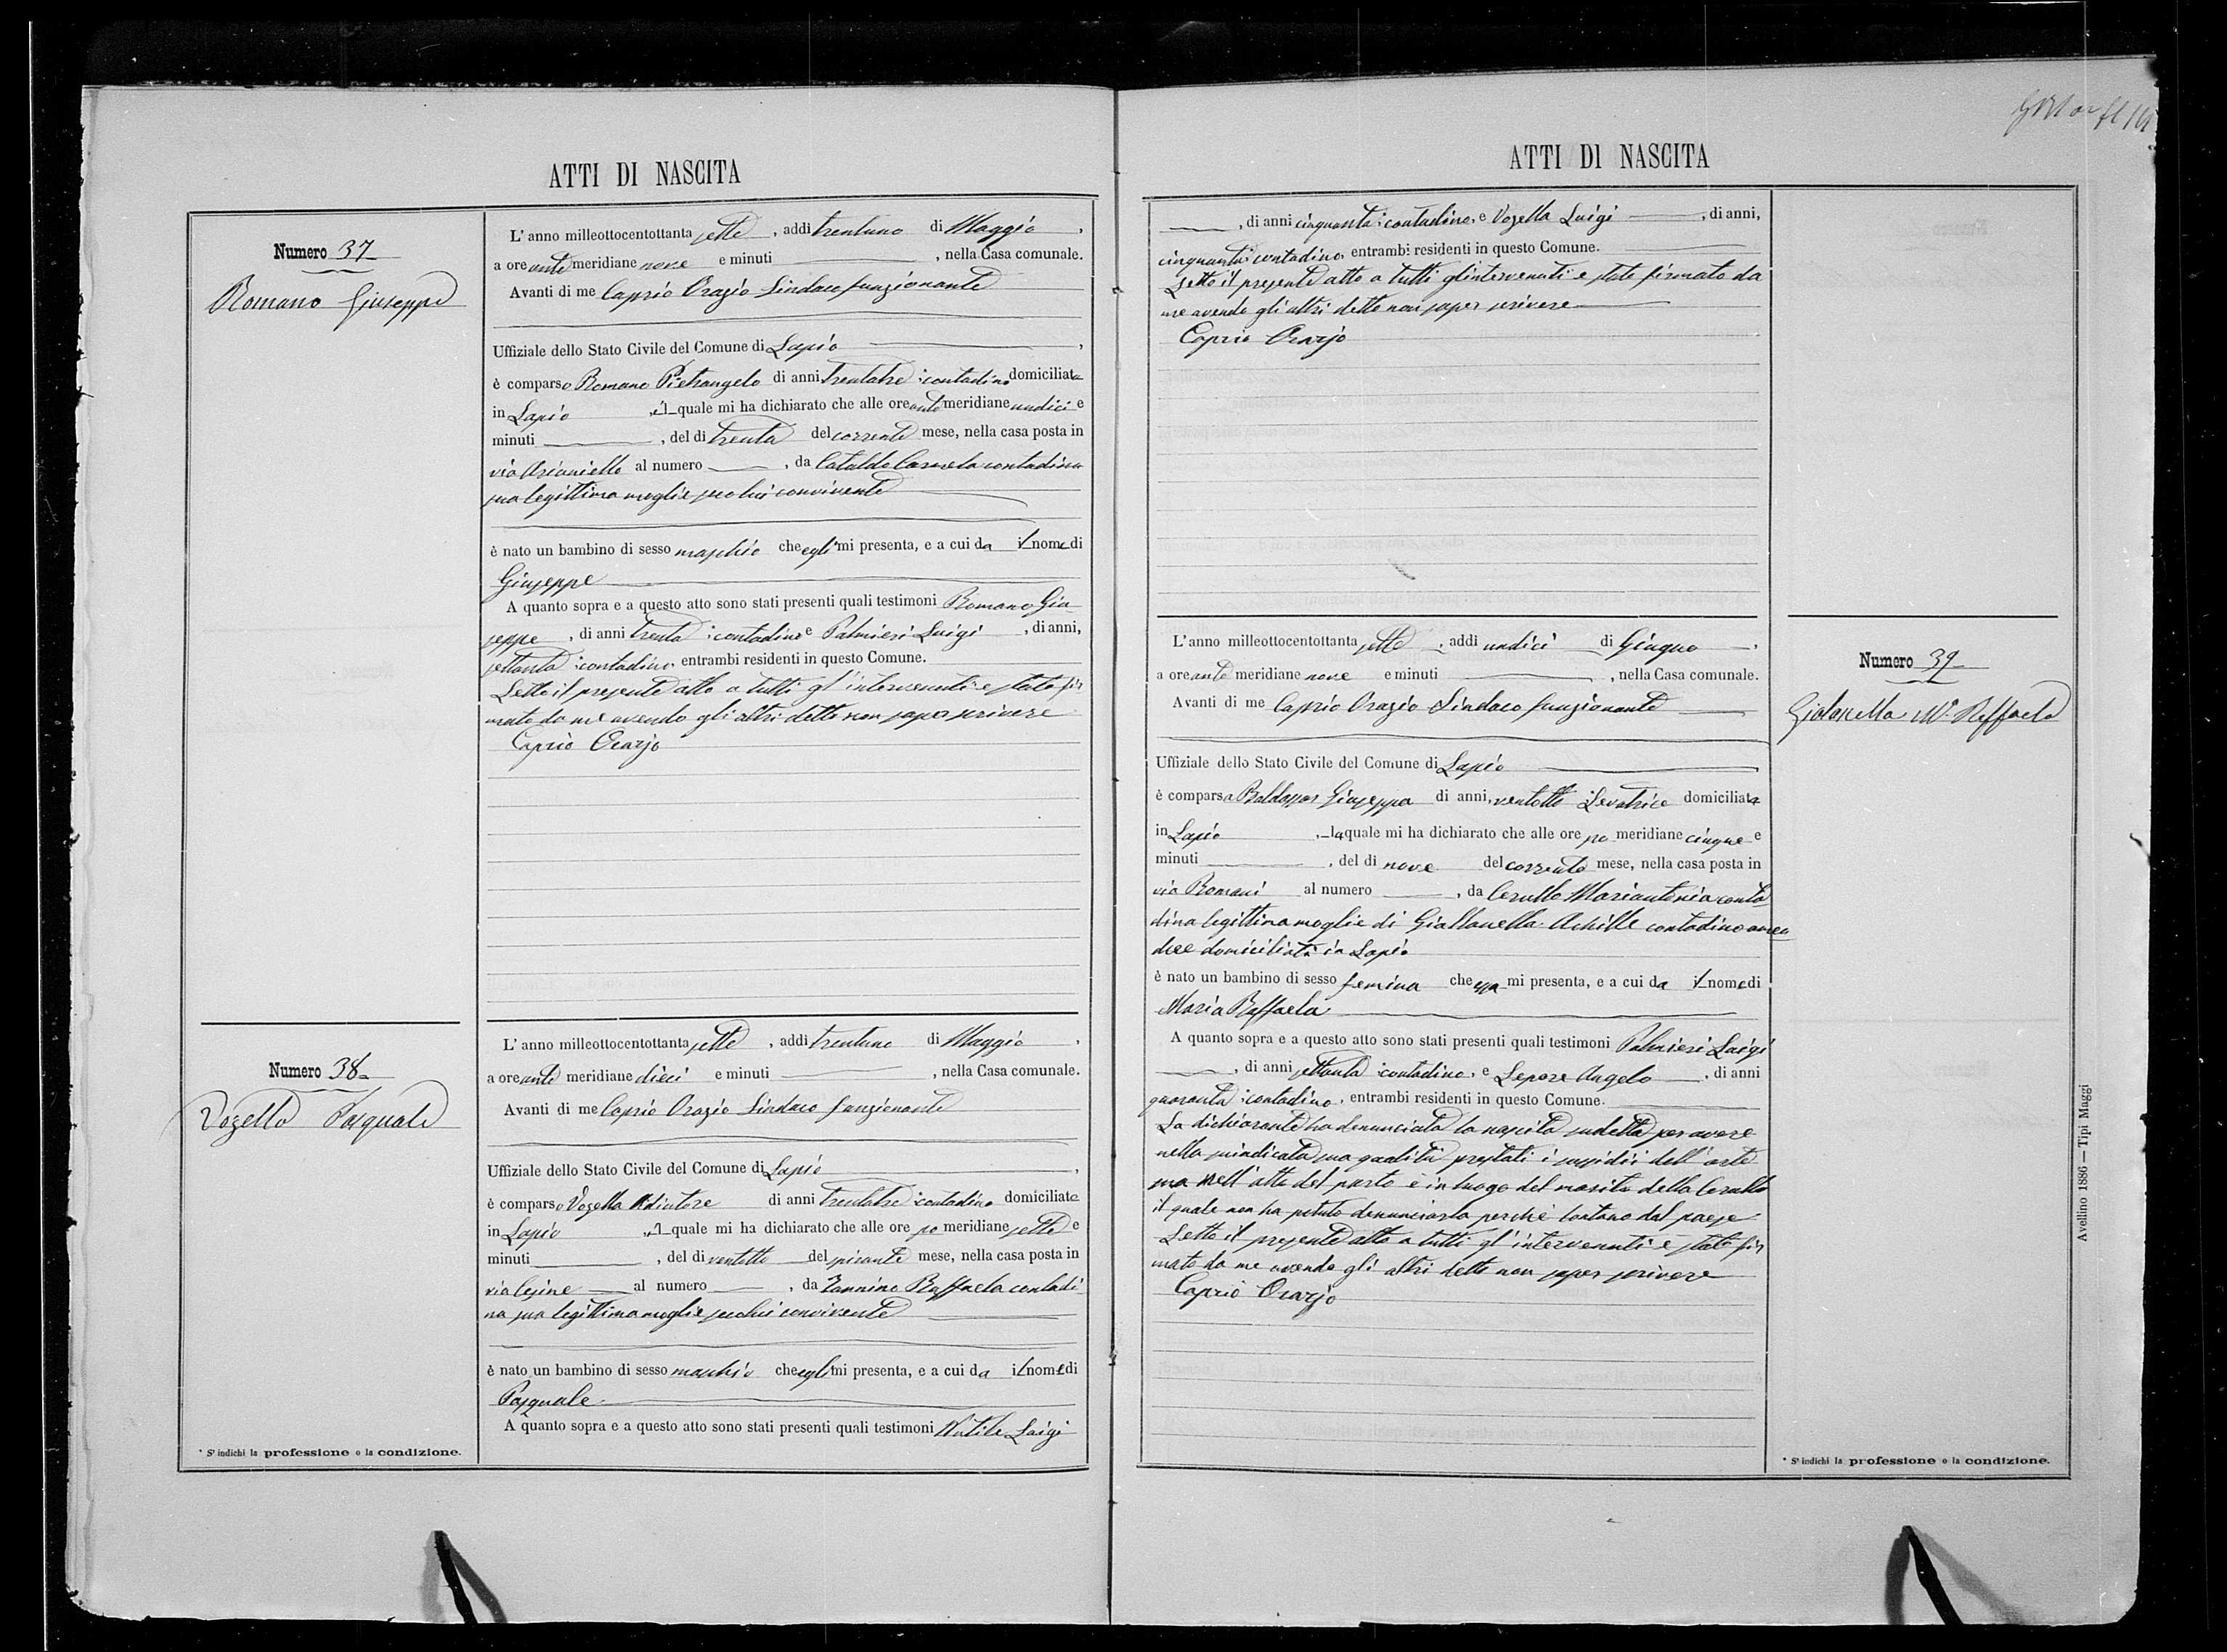 ATTI DI NASCITA
Numero 37
Romano Giuseppe
L'anno milleottocentottanta sette, addì trentuno di Maggio,
a ore ante meridiane nove e minuti, nella Casa comunale.
Avanti di me Caprio Orazio Sindaco funzionante
Uffiziale dello Stato Civile del Comune di Lapio,
è comparso Romano Pietrangelo di anni trentatre contadino domiciliato
in Lapio, il quale mi ha dichiarato che alle ore ante meridiane undici e
minuti, del dì trenta del corrente mese, nella casa posta in
via Arianiello al numero, da Cataldo contadina
sua legittima moglie seco lui convivente
è nato un bambino di sesso maschio che egli mi presenta, e a cui da il nome di
Giuseppe
A quanto sopra e a questo atto sono stati presenti quali testimoni Romano Giu
seppe, di anni trenta contadino e Palmieri Luigi, di anni,
settanta contadino, entrambi residenti in questo Comune.
Letto il presente atto a tutti gl'intervenuti è stato fir
mato da me avendo gli altri detto non saper scrivere
Caprio Orazio
Numero 38
Vozella Pasquale
L'anno milleottocentottanta sette, addì trentuno di Maggio,
a ore ante meridiane dieci e minuti, nella Casa comunale.
Avanti di me Caprio Orazio Sindaco funzionante
Uffiziale dello Stato Civile del Comune di Lapio,
è comparso Vozella Adiutore di anni trentatre contadino domiciliato
in Lapio, il quale mi ha dichiarato che alle ore po meridiane sette e
minuti, del dì ventotto del mese, nella casa posta in
via al numero, da Iannino Raffaela contadi
na sua legittima moglie seco lui convivente
è nato un bambino di sesso maschio che egli mi presenta, e a cui da il nome di
Pasquale
A quanto sopra e a questo atto sono stati presenti quali testimoni Luigi
* S'indichi la professione o la condizione.
ATTI DI NASCITA
, di anni cinquanta contadino, e Vozella Luigi, di anni,
cinquanta contadino, entrambi residenti in questo Comune.
Letto il presente atto a tutti gl'intervenuti è stato firmato da
me avendo gli altri detto non saper scrivere
Caprio Orazio
L'anno milleottocentottanta sette, addì undici di Giugno,
a ore ante meridiane nove e minuti, nella Casa comunale.
Avanti di me Caprio Orazio Sindaco funzionante
Numero 39
Giolonella Mª Raffaela
Uffiziale dello Stato Civile del Comune di Lapio
è comparsa Baldassar Giuseppa di anni, ventotto Levatrice domiciliata
in Lapio, la quale mi ha dichiarato che alle ore po meridiane cinque e
minuti, del dì nove del corrente mese, nella casa posta in
via Romani al numero, da Cerullo Mariantonia conta
dina legittima moglie di Giallonella Achille contadino
domiciliati in Lapio
è nato un bambino di sesso femina che essa mi presenta, e a cui da il nome di
Maria Raffaela
A quanto sopra e a questo atto sono stati presenti quali testimoni Palmieri Luigi
, di anni settanta contadino, e Lepore Angelo, di anni
quaranta contadino, entrambi residenti in questo Comune.
La dichiarante ha denunciata la nascita sudetta per avere
nella suindicata sua qualità prestati i sussidii dell'arte
sua nell'atto del parto e in luogo del marito della Cerullo
il quale non ha potuto denunciarla perchè lontano dal paese
Letto il presente atto a tutti gl'intervenuti è stato fir
mato da me avendo gli altri detto non saper scrivere
Caprio Orazio
* S'indichi la professione o la condizione.
Avellino 1886 — Tipi Maggi